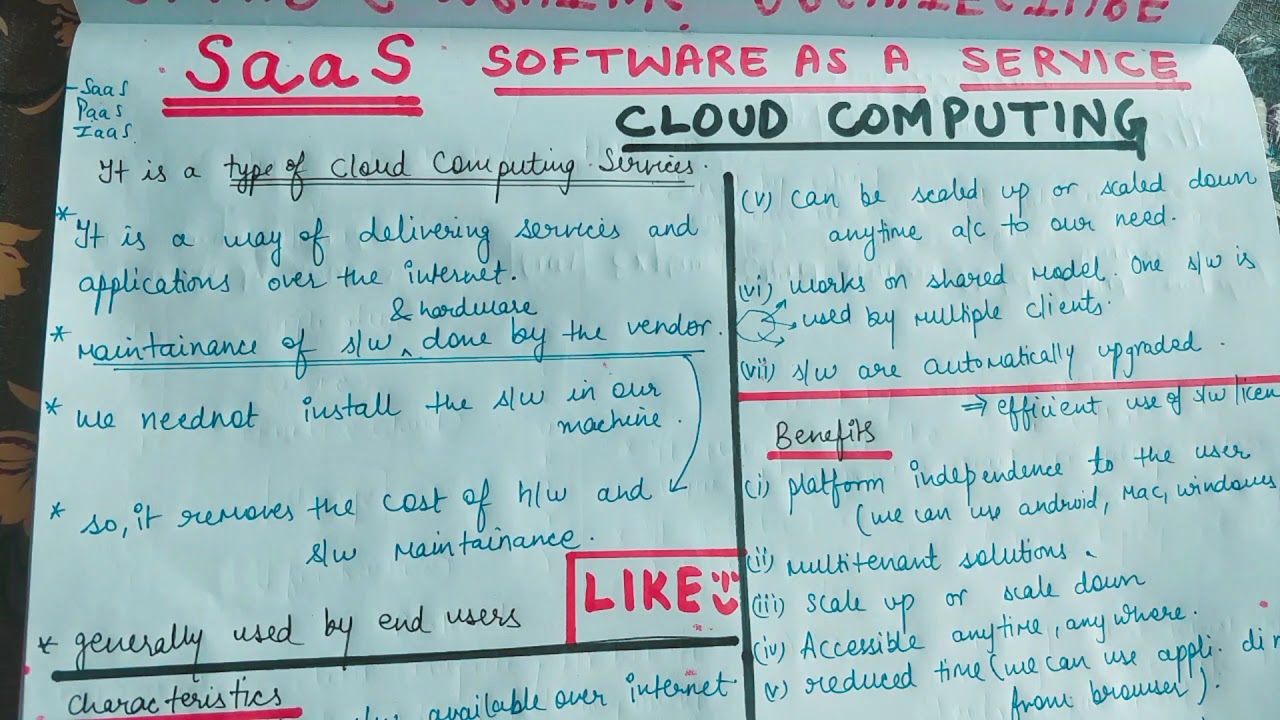 SaaS SOFTWARE AS A SERVICE
CLOUD COMPUTING
- SaaS
PaaS
IaaS
It is a type of Cloud Computing Services.
* It is a way of delivering services and
applications over the internet.
& hardware
* Maintainance of s/w ^ done by the vendor.
* We neednot install the s/w in our
machine.
* So, it removes the cost of h/w and
s/w Maintainance.
* generally used by end users
LIKE
Characteristics
available over internet
(v) can be scaled up or scaled down
anytime a/c to our need.
(vi) works on shared model. One s/w is
used by multiple clients.
(vii) s/w are automatically upgraded.
⇒ efficient use of s/w licen
Benefits
(i) platform independence to the user
(we can use android, Mac, windows
(ii) Multitenant solutions.
(iii) Scale up or scale down
(iv) Accessible anytime, anywhere.
(v) reduced time (we can use appli. dir
from browser).